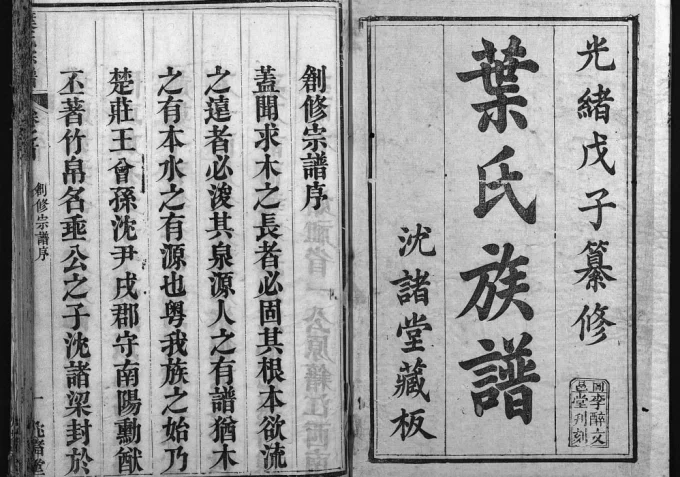 光緒戊子纂修
葉氏族譜
沈諸堂藏板
李醉文
堂刋刻
創修宗譜序
蓋聞求木之長者必固其根本欲流
之遠者必浚其泉源人之有譜猶木
之有本水之有源也粵我族之始乃
楚莊王曾孫沈尹戌郡守南陽勳猷
丕著竹帛名垂公之子沈諸梁封於
創修宗譜序
一
沈諸堂